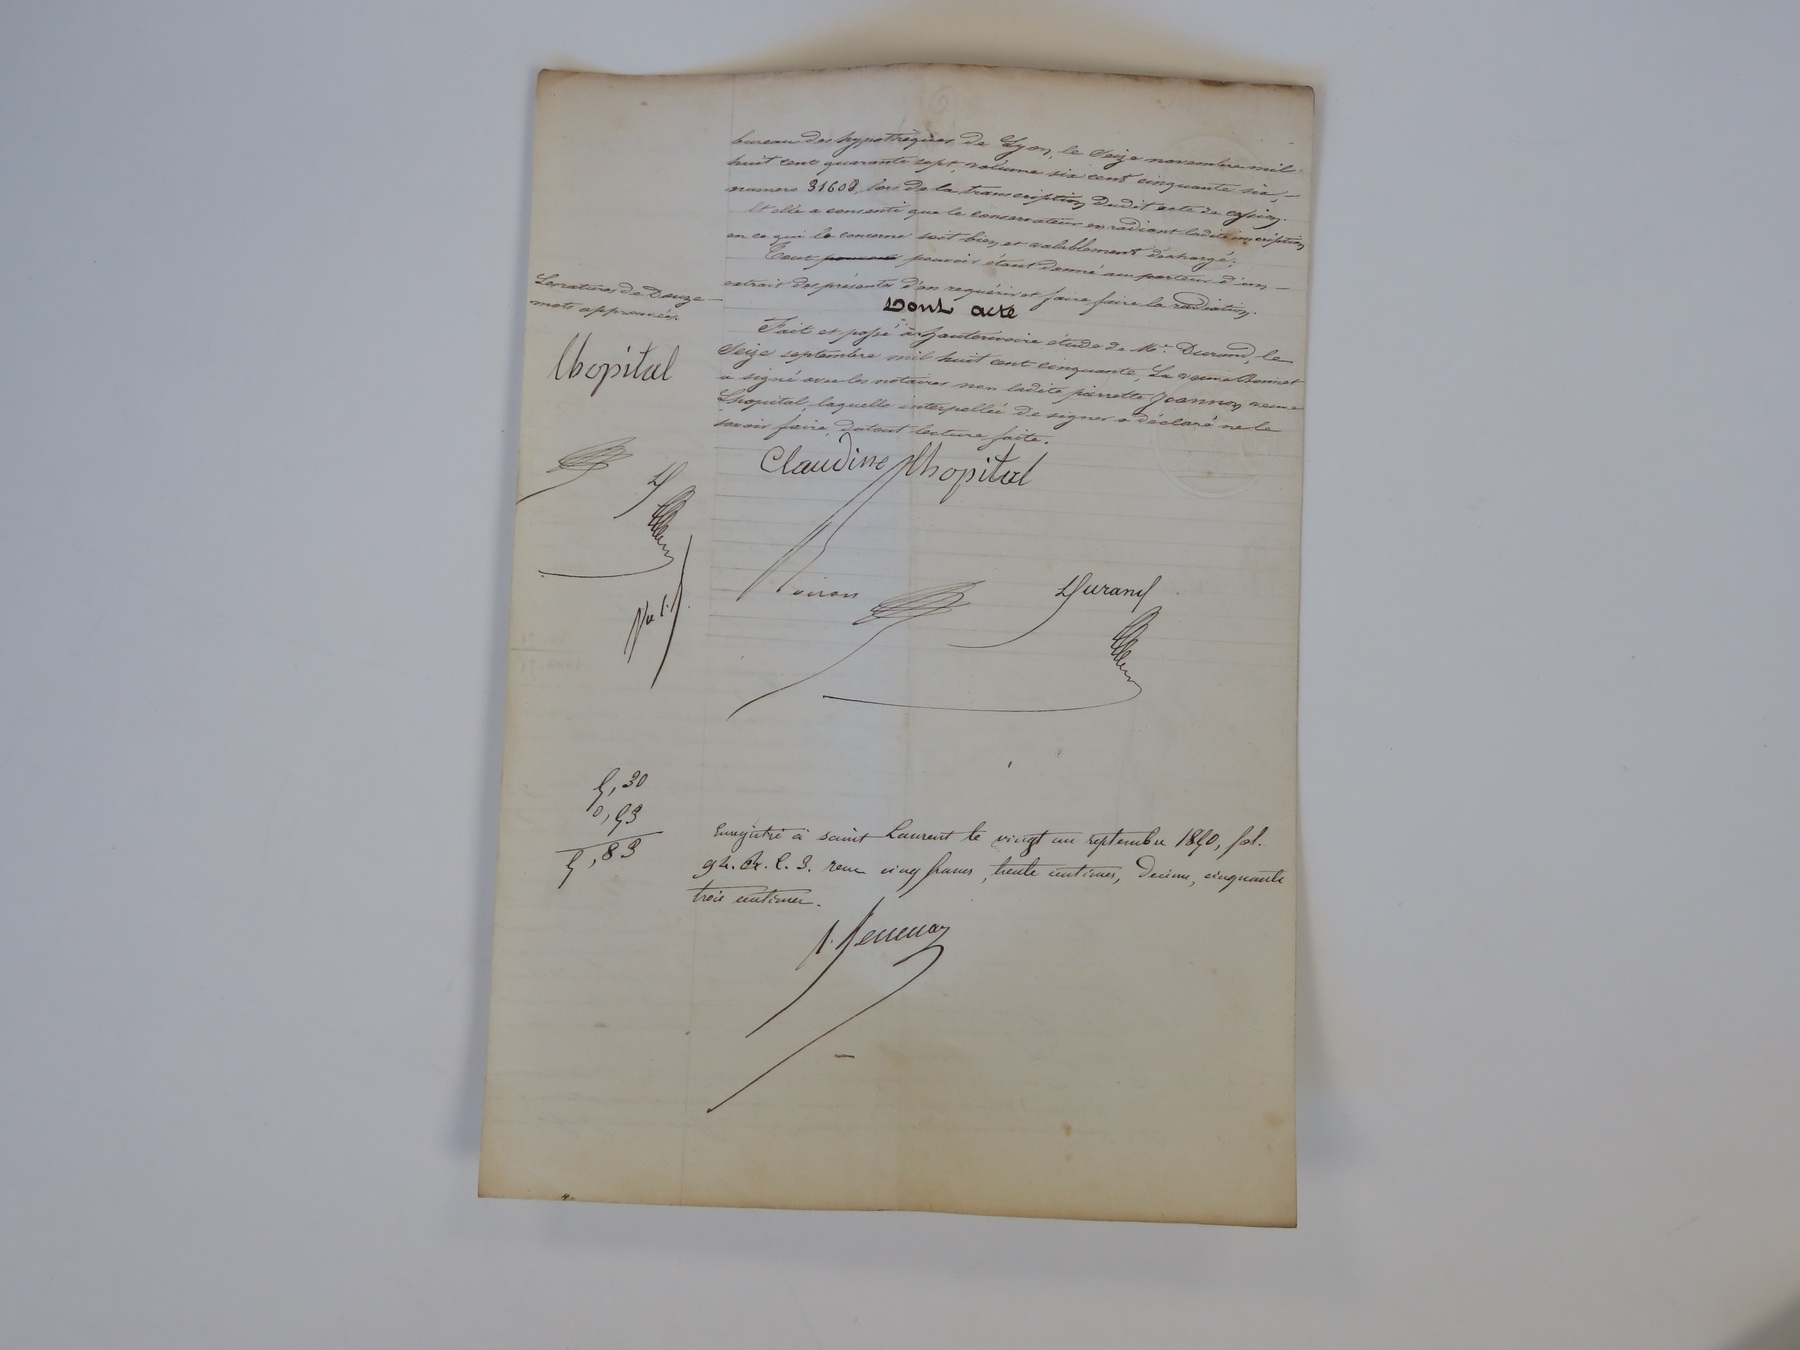 bureau des hypothèques de Lyon, le seize novembre mil
huit cent quarante sept, volume six cent cinquante six,
numero 31608, lors de la transcription dudit acte de cession.
Et elle a consenti que le conservateur en radiant ladite inscription
en ce qui le concerne soit bien et valablement déchargé.
Tout pouvoir étant donné au porteur d'un
extrait des présentes d'en requérir et faire faire la radiation.
Dont acte
Fait et passé à étude de Me. Durand, le
seize septembre mil huit cent cinquante, La veuve Bonnet
a signé avec les notaires non ladite pierrette Joannon veuve
Lhopital, laquelle interpellée de signer a déclaré ne le
savoir faire, dutout lecture faite.
de Douze
mots approuvés.
Lhopital
Claudine Lhopital
Durand
5,30
0,53
5,83
Enregistré à saint Laurent le vingt un septembre 1850, fol.
94. R. C. 3. reçu cinq francs, trente centimes, Decime, cinquante
trois centimes.